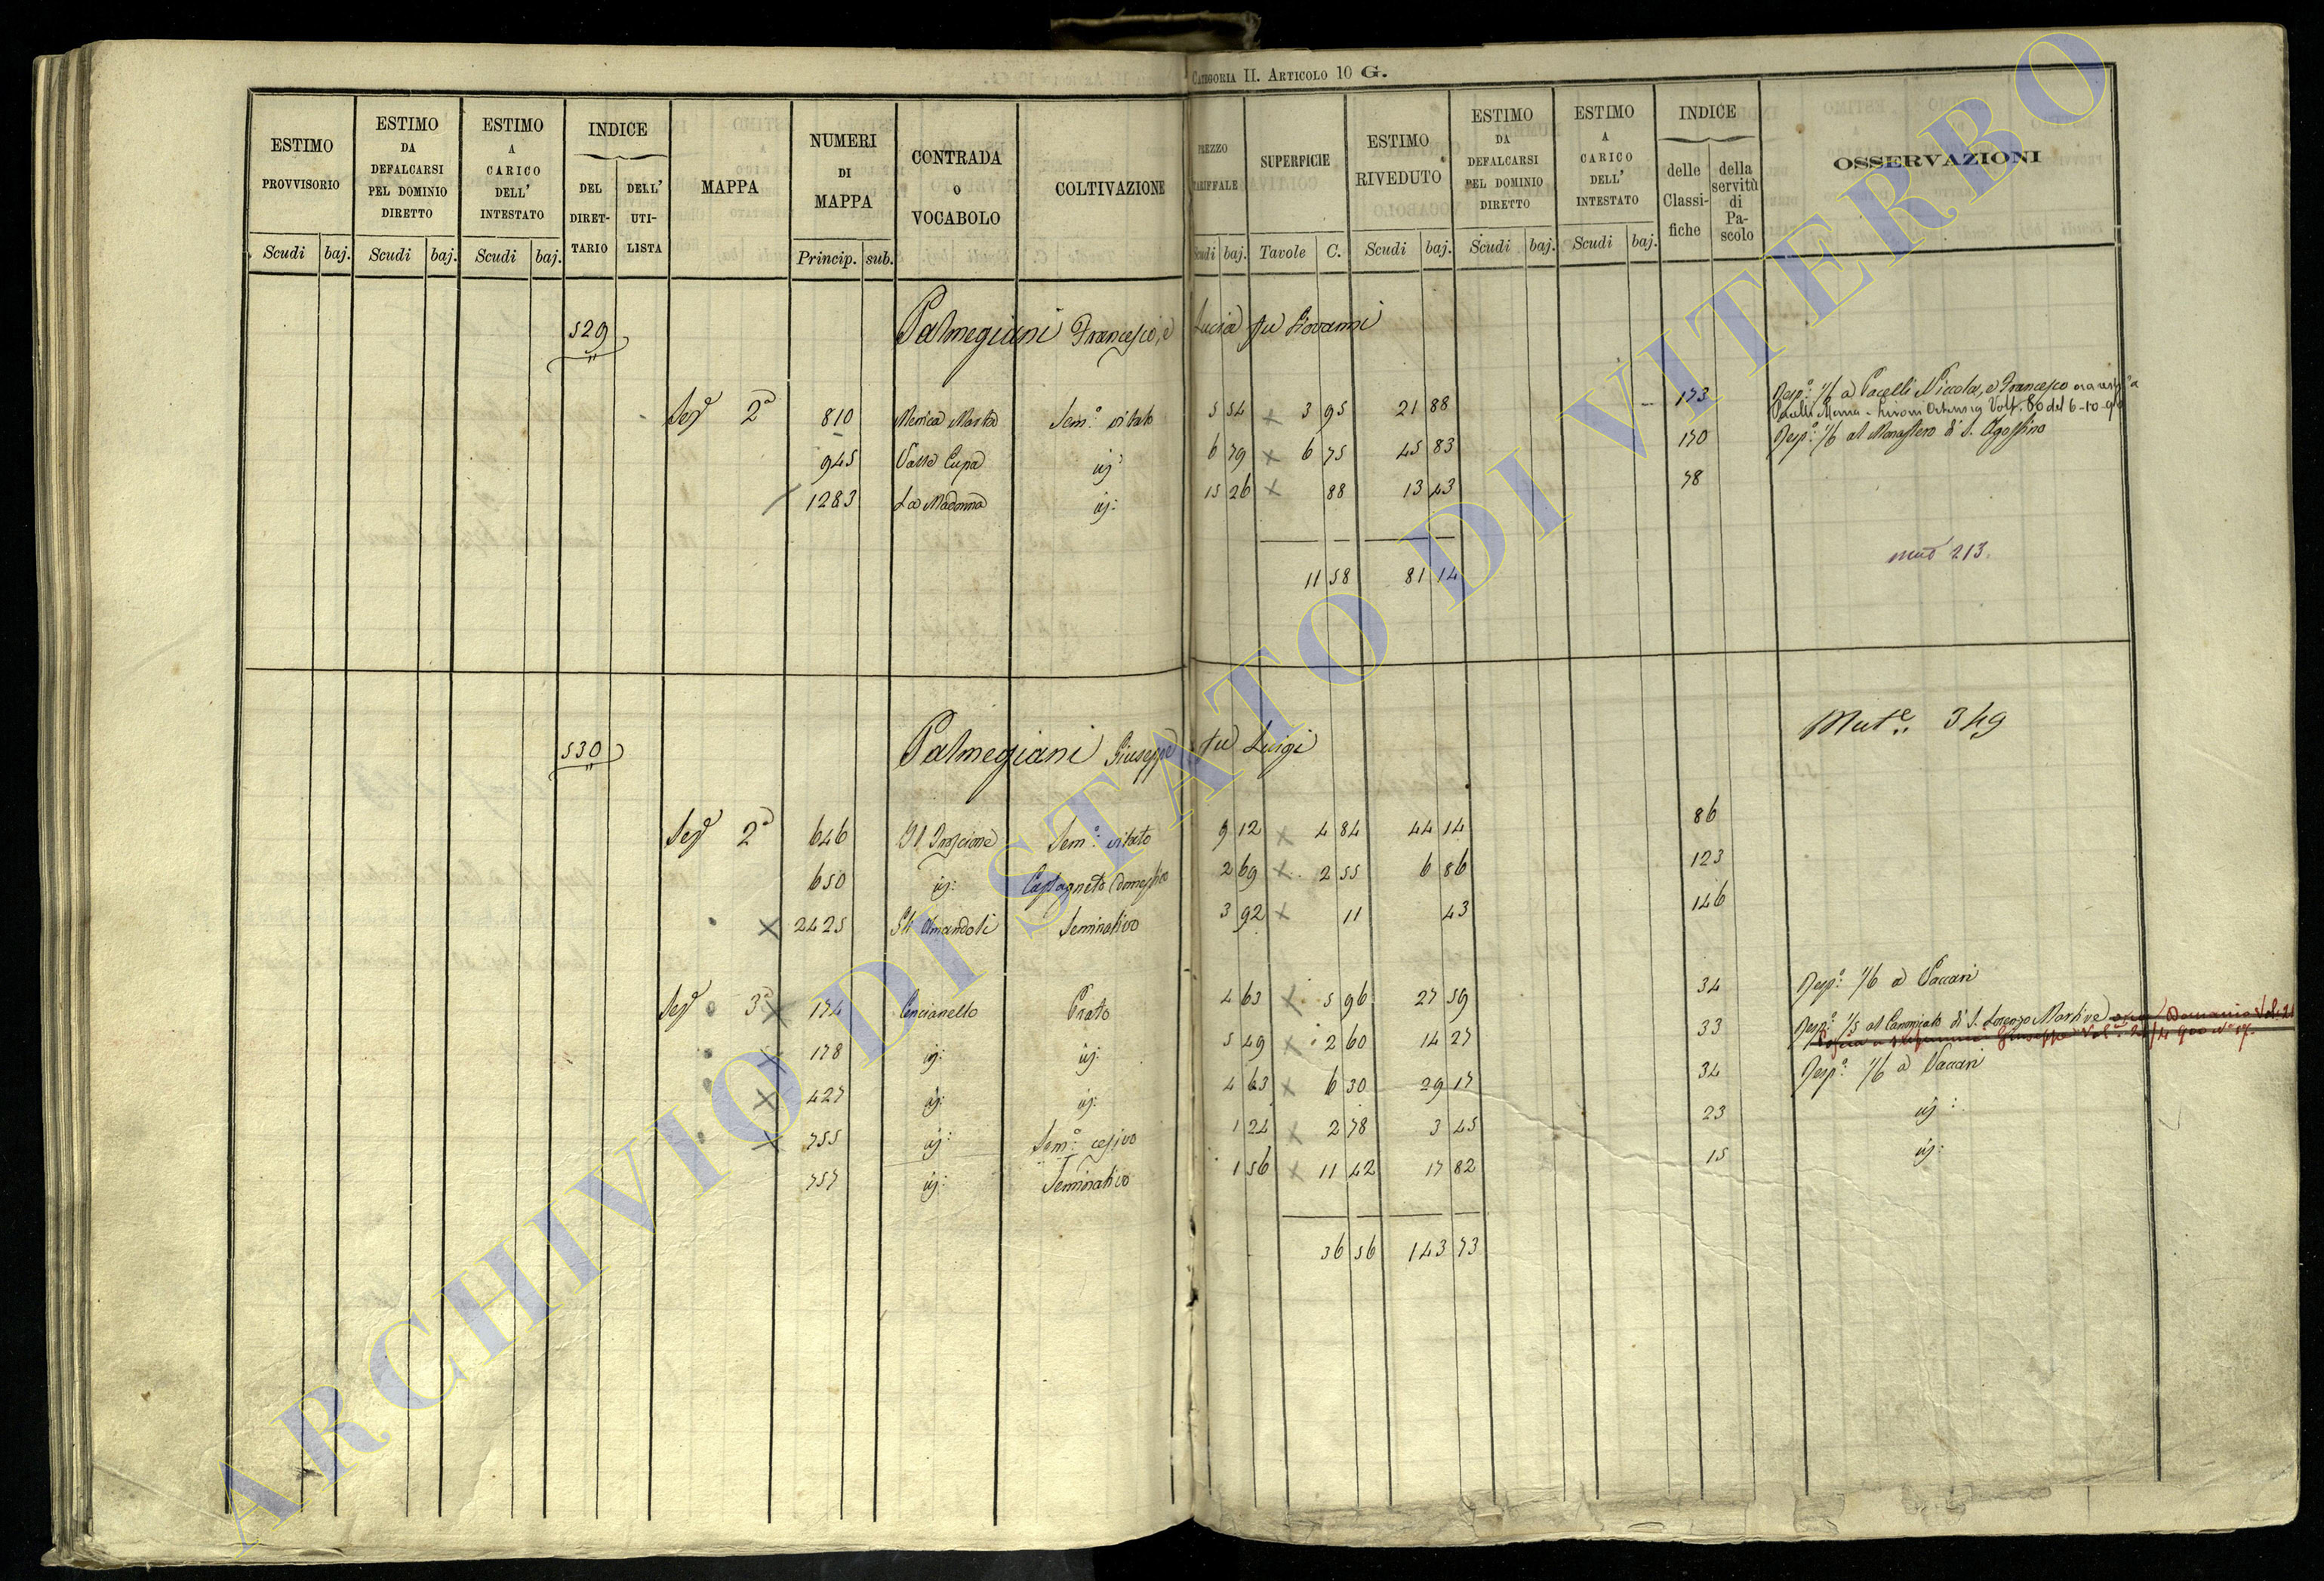 CATEGORIA II. ARTICOLO 10 G.
ESTIMO PROVVISORIO Scudi baj.
ESTIMO DA DEFALCARSI PEL DOMINIO DIRETTO Scudi baj.
ESTIMO A CARICO DELL' INTESTATO Scudi baj.
INDICE DEL DIRETTARIO DELL' UTILISTA
MAPPA
NUMERI DI MAPPA Princip. sub.
CONTRADA O VOCABOLO
COLTIVAZIONE
PREZZO TARIFFALE Scudi baj.
SUPERFICIE Tavole C.
ESTIMO RIVEDUTO Scudi baj.
ESTIMO DA DEFALCARSI PEL DOMINIO DIRETTO Scudi baj.
ESTIMO A CARICO DELL' INTESTATO Scudi baj.
INDICE delle Classifiche della servitù di Pascolo
OSSERVAZIONI
529 Palmegiani Francesco, e Lucia fu Giovanni
Sez 2a 810 Sem.o vitato 5 54 x 3 95 21 88 173 Resp.o 1/6 a Pacelli Niccola, e Francesco
Vol. 80 del 6-10-
945 Valle Cupa id 6 79 x 6 75 45 83 170 Resp.o 1/6 al Monastero di S. Agostino
1283 La Madonna id: 15 26 x 88 13 43 78
11 58 81 14
mut 213.
530 Palmegiani Giuseppe fu Luigi
Mut.e 349
Sez 2a 646 Sem.o vitato 9 12 x 4 84 44 14 86
650 id: Castagneto domestico 2 69 x 2 55 6 86 123
x 2425 Gli Amandoli Seminativo 3 92 x 11 43 146
Sez 3a x 174 Cencianello Prato 4 63 x 5 96 27 59 34 Resp.o 1/6 a Vaccari
x 178 id: id: 5 49 x 2 60 14 27 33 Resp.o 1/5 al Canonicato di S. Lorenzo Martire ora Demanio
x 427 id: id: 4 63 x 6 30 29 17 34 Resp.o 1/6 a Vaccari
x 755 id: Sem.o cesivo 1 24 x 2 78 3 45 23 id:
757 id: Seminativo 1 56 x 11 42 17 82 15 id:
36 56 143 73
ARCHIVIO DI STATO DI VITERBO